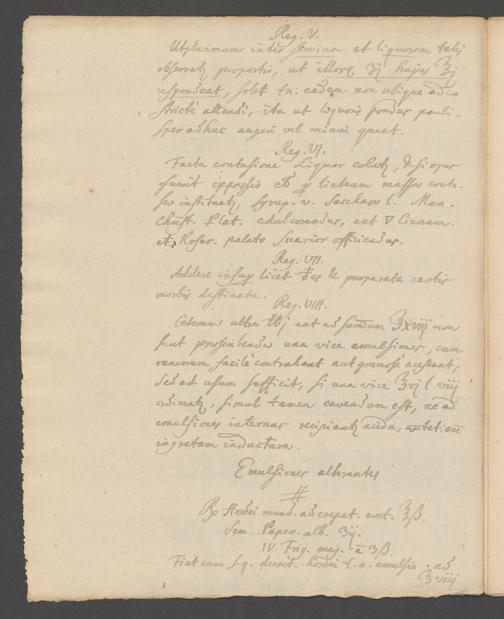 Reg. V.
Utplurimum inter semina et liquorem talis
observatur proportio, ut illorum ʒj hujus ℥j
respondeat, solet tn. eadem non ubique adeo
stricte attendi, ita ut liquoris pondus pauli-
sper adhuc augeri vel minui queat.
Reg. VI.
Facta contusione Liquor colatur, & si opus
fuerit expressio per linteum massae contu-
sae instituatur, Syrup. v. Saccharo l. Man.
Christ. Plat. edulcorandus, aut ▽ Cinnam.
et Rosar. palato suavior efficiendus.
Reg. VII.
Addere licet praeparata certis
morbis destinata.
Reg. VIII.
Caeterum ultra ℔j aut ad summum ℥xviij non
sint proscribendae una vice emulsiones, cum
rancorem facile contrahant aut acescant;
Sed ad usum sufficit, si una vice ℥vj l. viij
ordinentur, simul tamen cavendum est, ne ad
emulsiones internas recipiantur acida,
ingratam inductura.
Emulsiones alterantes
℞ Hordei mund. ad crepat. coct. ℥ß.
Sem. Papav. alb. ʒij.
IV. Frig. maj. a ʒß.
Fiat cum s. q. decoct. hordei l. a. emulsio. ad
℥viij